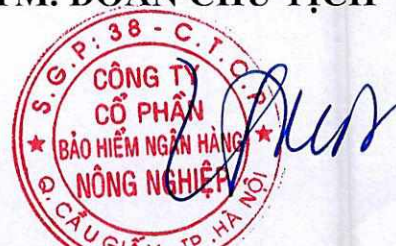 TM. ĐOÀN CHỦ TỊCH
S.G.P: 38 - C.T.C.P
CÔNG TY
CỔ PHẦN
BẢO HIỂM NGÂN HÀNG
NÔNG NGHIỆP
Q. CẦU GIẤY - TP. HÀ NỘI